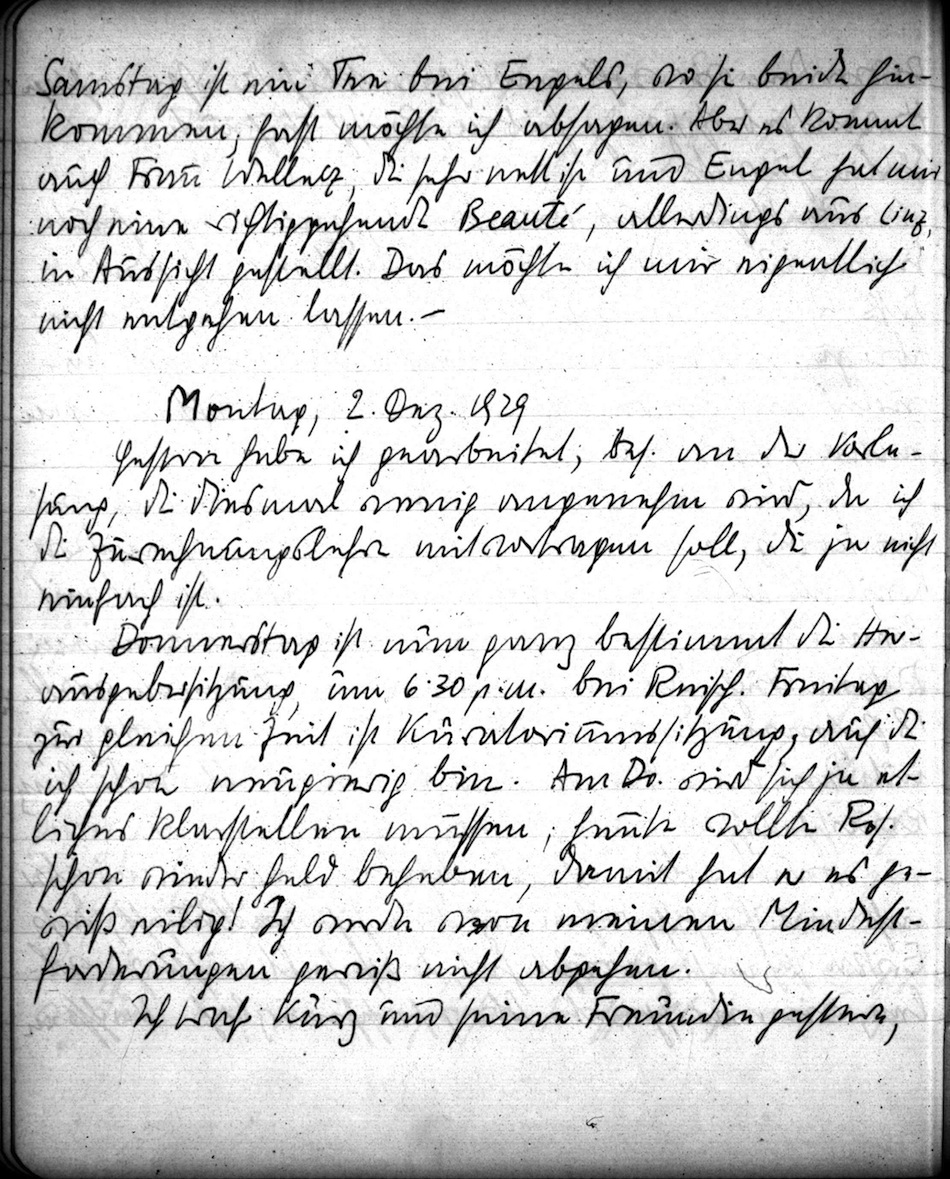 Samstag ist ein Tee bei Engels, wo sie beide hin-
kommen, fast möchte ich absagen. Aber es kommt
auch Frau die sehr nett ist und Engel hat mir
noch eine richtiggehende Beauté, allerdings aus Linz,
in Aussicht gestellt. Das möchte ich mir eigentlich
nicht entgehen lassen.—
Montag, 2. Dez. 1929
Gestern habe ich gearbeitet, bes. an der Vorle-
sung, die diesmal wenig angenehm sind, da ich
die Zurechnungslehre mitvortragen soll, die ja nicht
einfach ist.
Donnerstag ist nun ganz bestimmt die Her-
ausgebersitzung, um 6.30 p.m. bei Reisch. Freitag
zur gleichen Zeit ist Kuratoriumssitzung, auf die
ich schon neugierig bin. Am Do. wird sich ja et-
liches klarstellen müssen; heute wollte Ros.
schon wieder Geld beheben, damit hat er es ge-
wiß eilig! Ich werde von meinen Mindest-
forderungen gewiß nicht abgehen.
Ich traf Kurz und seine Freundin gestern,